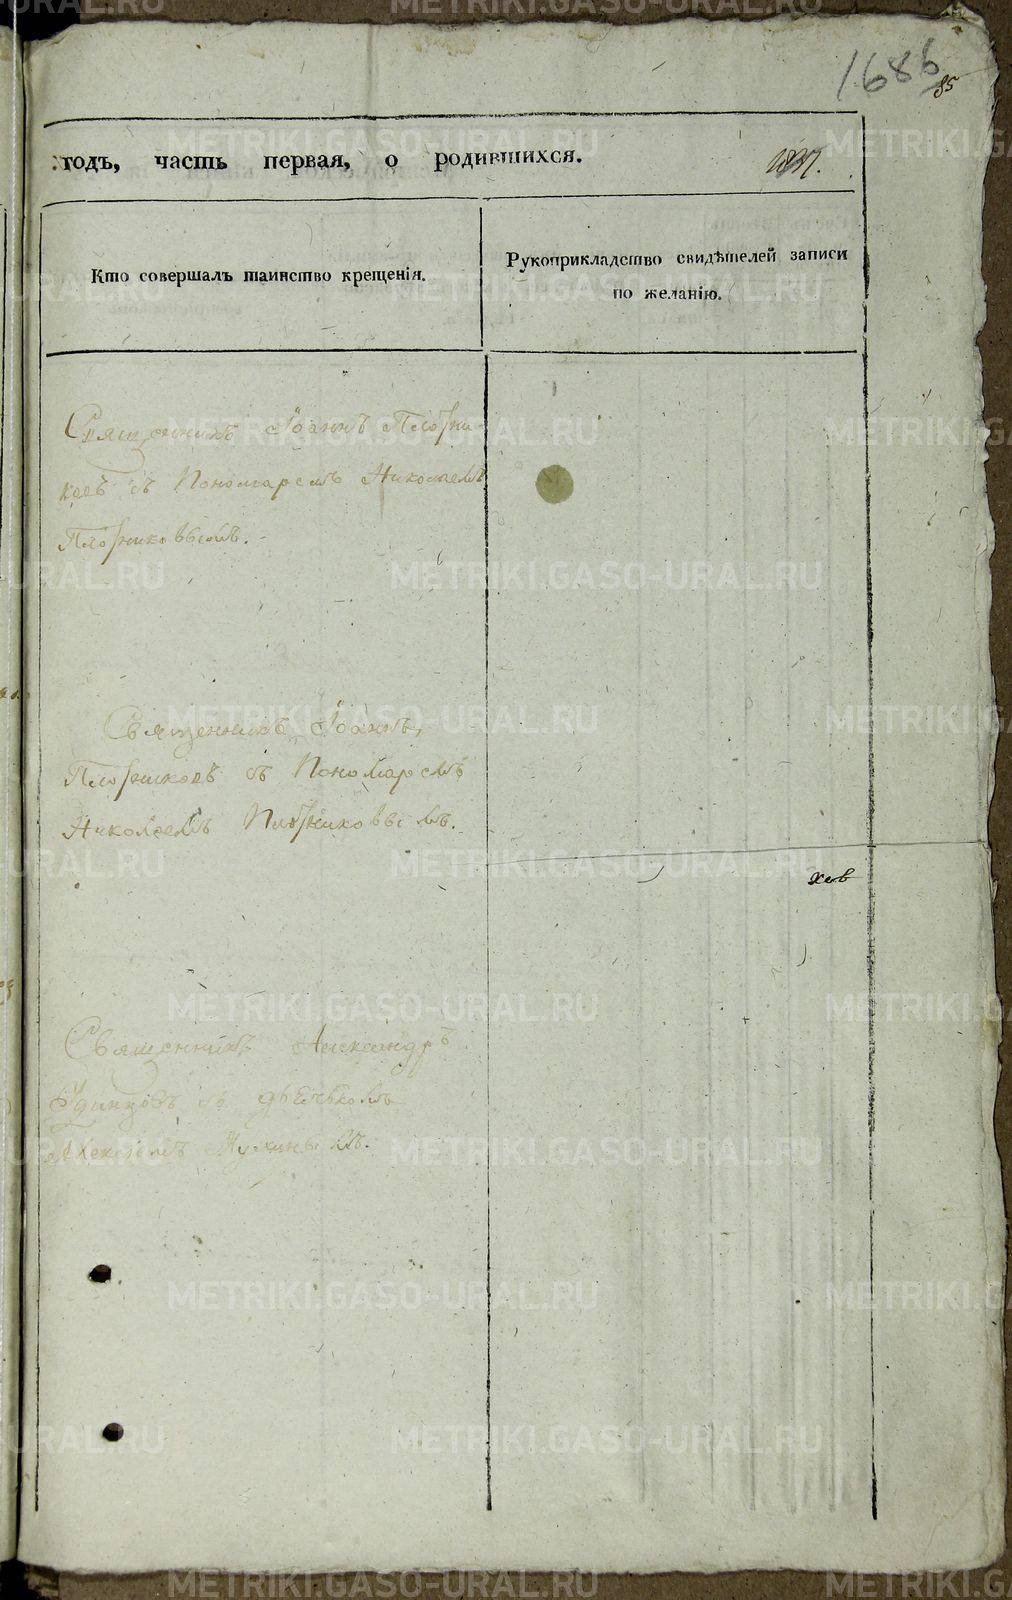 1686
85
годъ, часть первая, о родившихся.
Кто совершалъ таинство крещенія.
Рукоприкладство свидѣтелей записи
по желанію.
Священникъ Іоаннъ Плотни-
ковъ съ Пономаремъ Николаемъ
Плотниковымъ.
Священникъ Іоаннъ
Плотниковъ съ Пономаремъ
Николаемъ Плотниковымъ.
Священникъ Александръ
Удинцовъ съ дьячкомъ
Алексѣемъ Мухинымъ.
METRIKI.GASO-URAL.RU